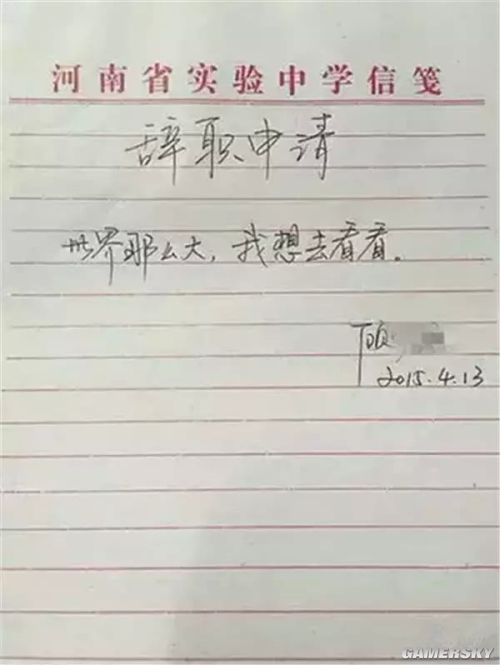 河南省实验中学信笺
辞职申请
世界那么大，我想去看看。
顾
2015.4.13
GAMERSKY